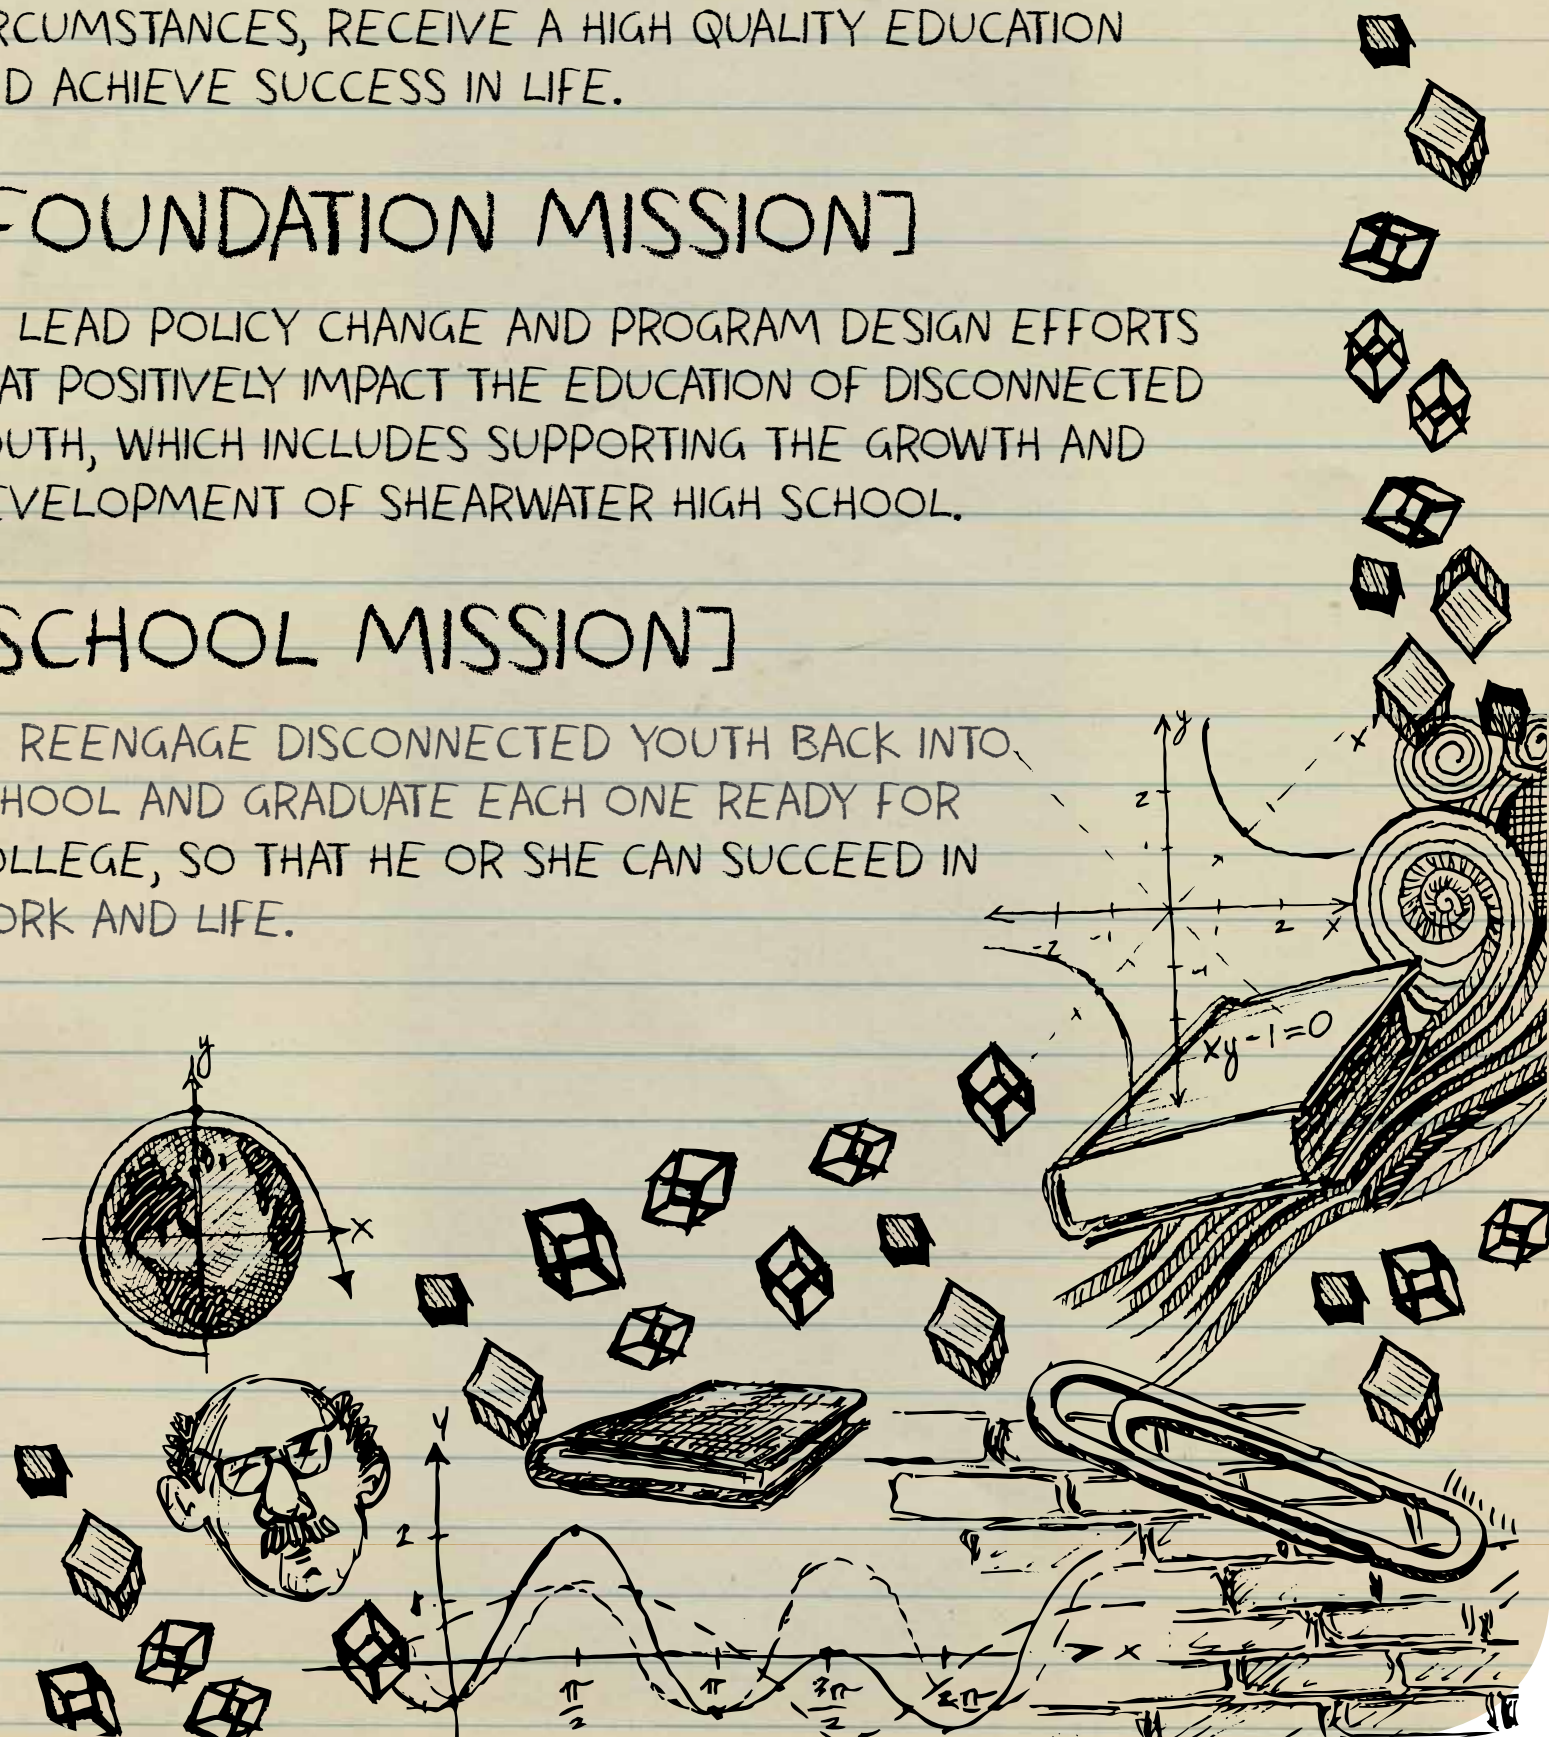 RCUMSTANCES, RECEIVE A HIGH QUALITY EDUCATION
D ACHIEVE SUCCESS IN LIFE.
FOUNDATION MISSION]
LEAD POLICY CHANGE AND PROGRAM DESIGN EFFORTS
AT POSITIVELY IMPACT THE EDUCATION OF DISCONNECTED
OUTH, WHICH INCLUDES SUPPORTING THE GROWTH AND
EVELOPMENT OF SHEARWATER HIGH SCHOOL.
SCHOOL MISSION]
REENGAGE DISCONNECTED YOUTH BACK INTO
HOOL AND GRADUATE EACH ONE READY FOR
OLLEGE, SO THAT HE OR SHE CAN SUCCEED IN
ORK AND LIFE.
y
x'
2
1
-2 -1 1 2 x
-1
x
xy-1=0
y
x
y
2
1
π/2 π 3π/2 2π x